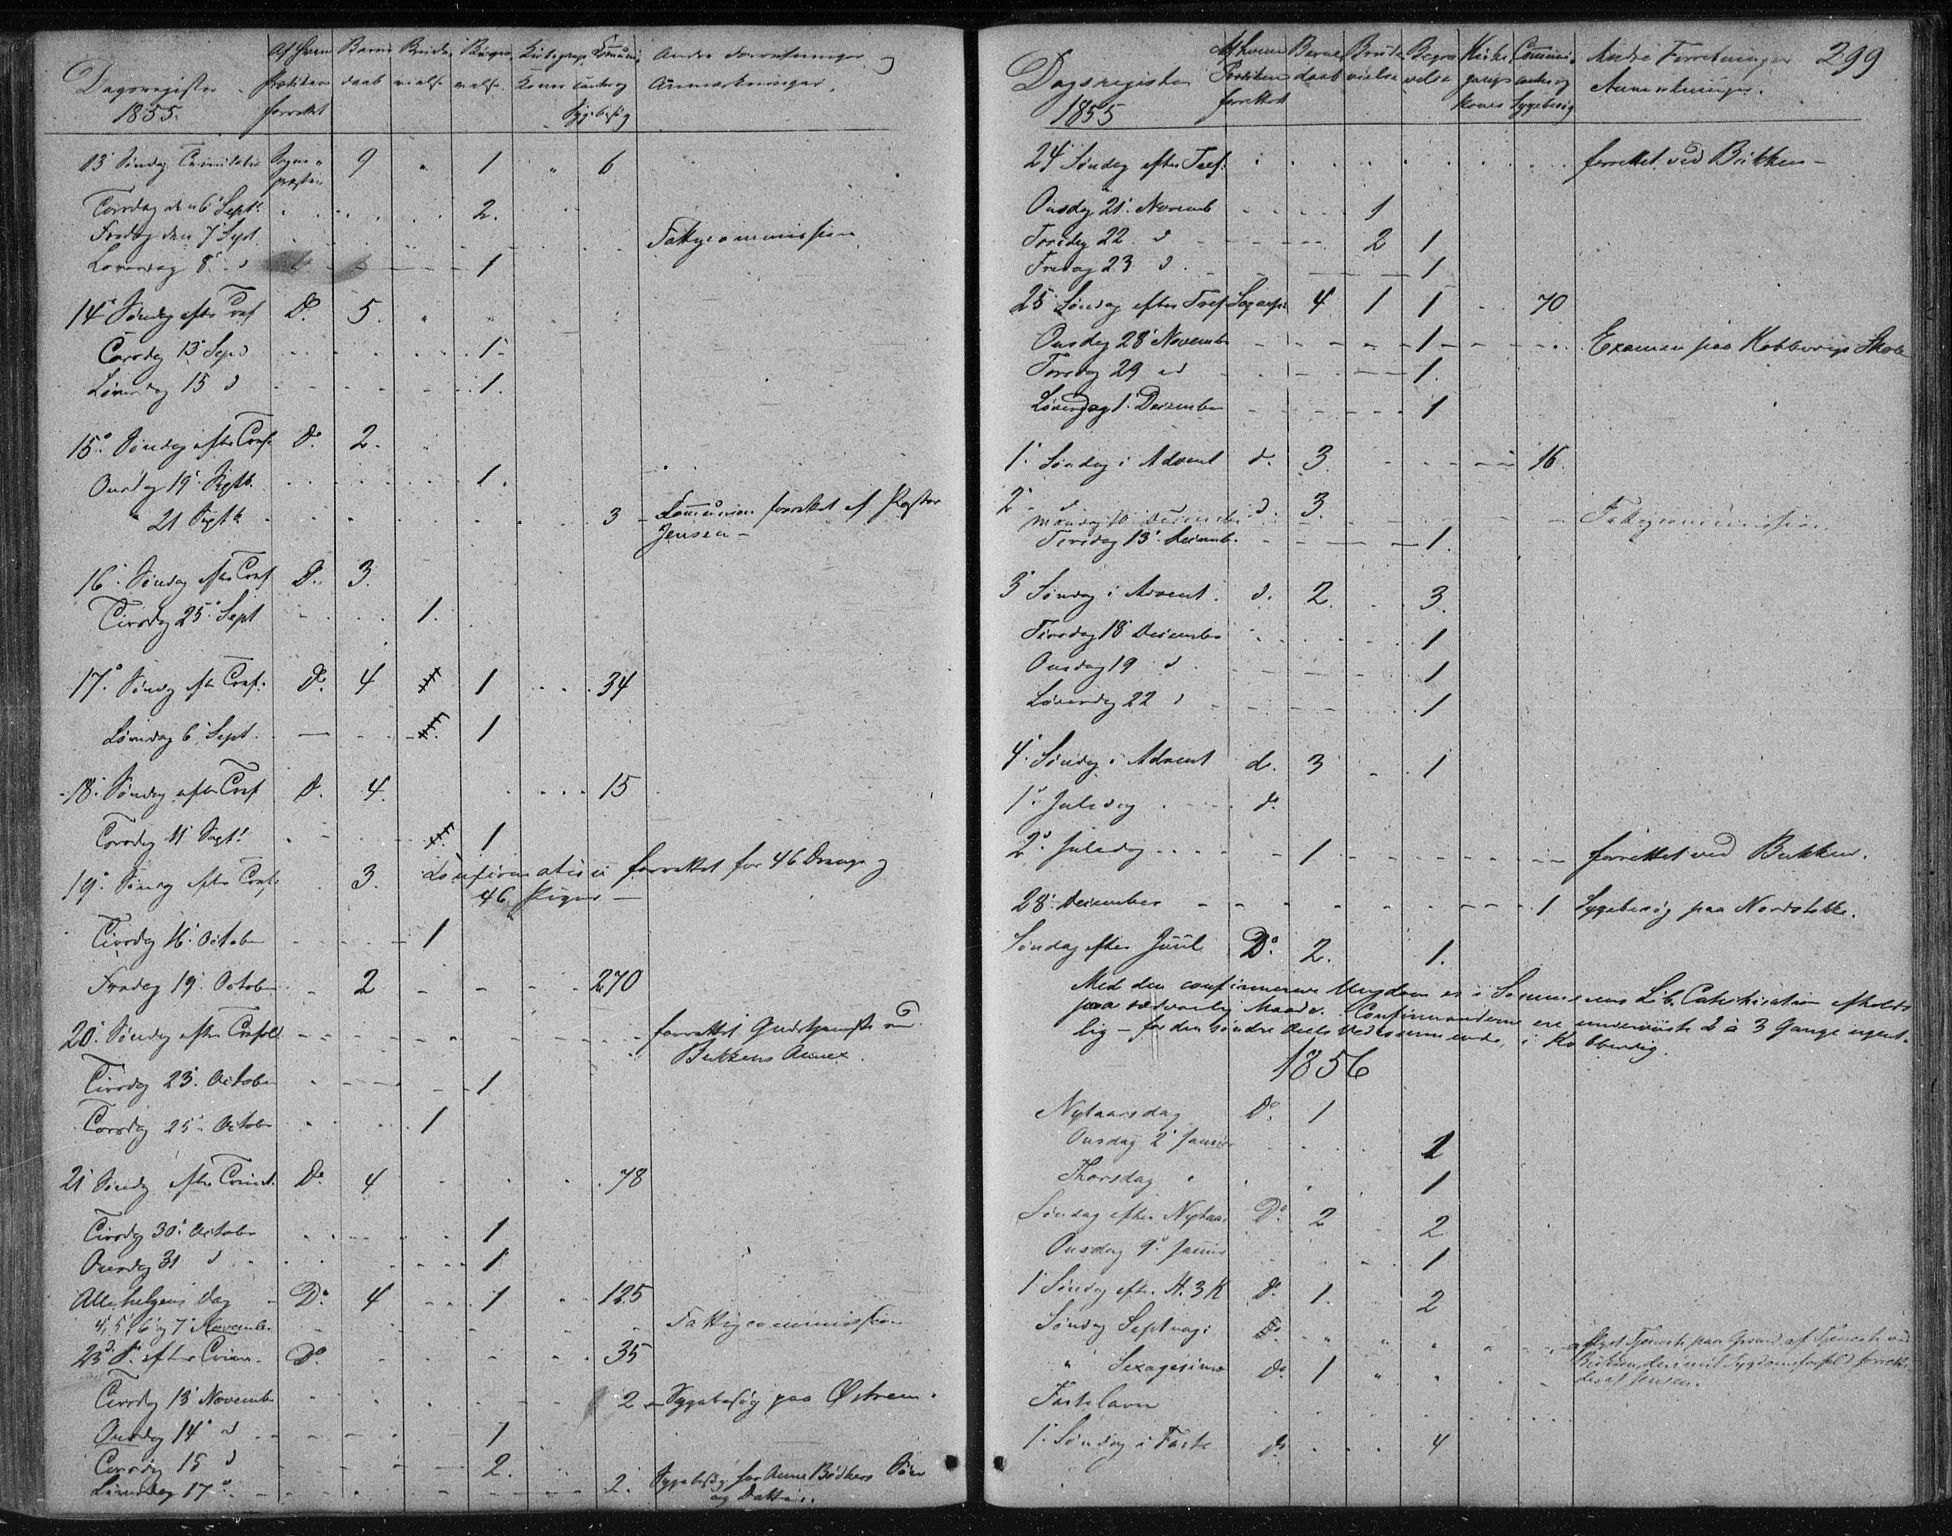 Dagsregister 1855.
Af hvem Prædiken forrettet
Barne daab
Brude vielse
Begra velse
Kirkegangs Koner
Communi canter og Sygebesøg
Andre Forretninger og Anmærkninger.
13 Søndag Trinitatis Sogne præsten 9 1 6
Torsdag den 6 Septr 2.
Fredag den 7 Sept Fattigcommission
Løverdag 8 d 1
14 Søndag efter Tref Do 5.
Torsdag 13 Sept 1.
Løverdag 15 d 1.
15 Søndag efter Tref. Do 2.
Onsdag 19 Septb. 1.
21 Septb. 3 Communion forrettet af Pastor
Jensen
16 Søndag efter Tref Do 3.
Tirsdag 25 Sept 1.
17. Søndag efter Tref. Do 4 1 34
Løverdag 6 Sept. 1
18. Søndag efter Tref Do 4. 15
Torsdag 11 Sept. 1
19. Søndag efter Tref. 3. Confirmation forrettet for 46 Drenge og
46 Piger
Tirsdag 16 October 1
Fredag 19 October 2 270
20. Søndag efter Trefold forrettet Gudstjeneste ved
Bekkens Annex.
Tirsdag 23. October 1
Torsdag 25. October 1
21 Søndag efter Trinit. Do 4 78
Tirsdag 30. October 1
Onsdag 31 d 1
Allehelgens dag Do 4 1 125
4, 5, 6 og 7 November Fattigcommission
23 S. efter Trin. Do 35
Tirsdag 13 Novembr 2 Sygebesøg paa Østrem.
Onsdag 14 d 1
Torsdag 15 d 2.
Løverdag 17 2. Sygebesøg for Anne Bødkers Søn
og Datter.
299
Dagsregister 1855
Af hvem Prædiken forrettet
Barne daab
Brude vielse
Begra velse
Kirke gangs Koner
Communi canter og Sygebesøg
Andre Forretninger Anmerkninger.
24 Søndag efter Tref. forrettet ved Bekken
Onsdag 21 Novemb 1
Torsdag 22 d 2 1
Fredag 23 d 1
25 Søndag efter Tref Sognepr 4 1 1 70
Onsdag 28 Novembr 1 Examen paa Kobbervigs Skole
Torsdag 29 d 1.
Løverdag 1. December 1
1. Søndag i Advent d. 3. 16.
2 d d. 3.
Mandag 10 December Fattigcommission
Torsdag 13. Decemb. 1.
3 Søndag i Advent. d. 2. 3.
Tirsdag 18 December 1
Onsdag 19 d 1
Løverdag 22 d 1
4. Søndag i Advent d. 3 1
1. Juledag do
2. Juledag 1 forrettet ved Bekken.
28. December 1 Sygebesøg paa Nordstokke.
Søndag efter Juul Do 2. 1.
Med den confirmerede Ungdom er i Sommerens Løb Catechisation afholdt
paa sædvanlig Maade. Confirmanderne ere underviiste 2 à 3 Gange ugent-
lig – for den søndre Deels Vedkommende, i Kobbervig.
1856
Nytaarsdag Do 1
Onsdag 2 Januar 1
Thorsdag 1
Søndag efter Nytaar Do 2 2
Onsdag 9. Januar 1
1 Søndag efter H. 3 K do 1. 2
Søndag Septuagi aflyst Tjeneste paa Grund af Tjeneste ved
Bekken,
Sexagesima Do 1
Fastelavn
1. Søndag i Faste do 4